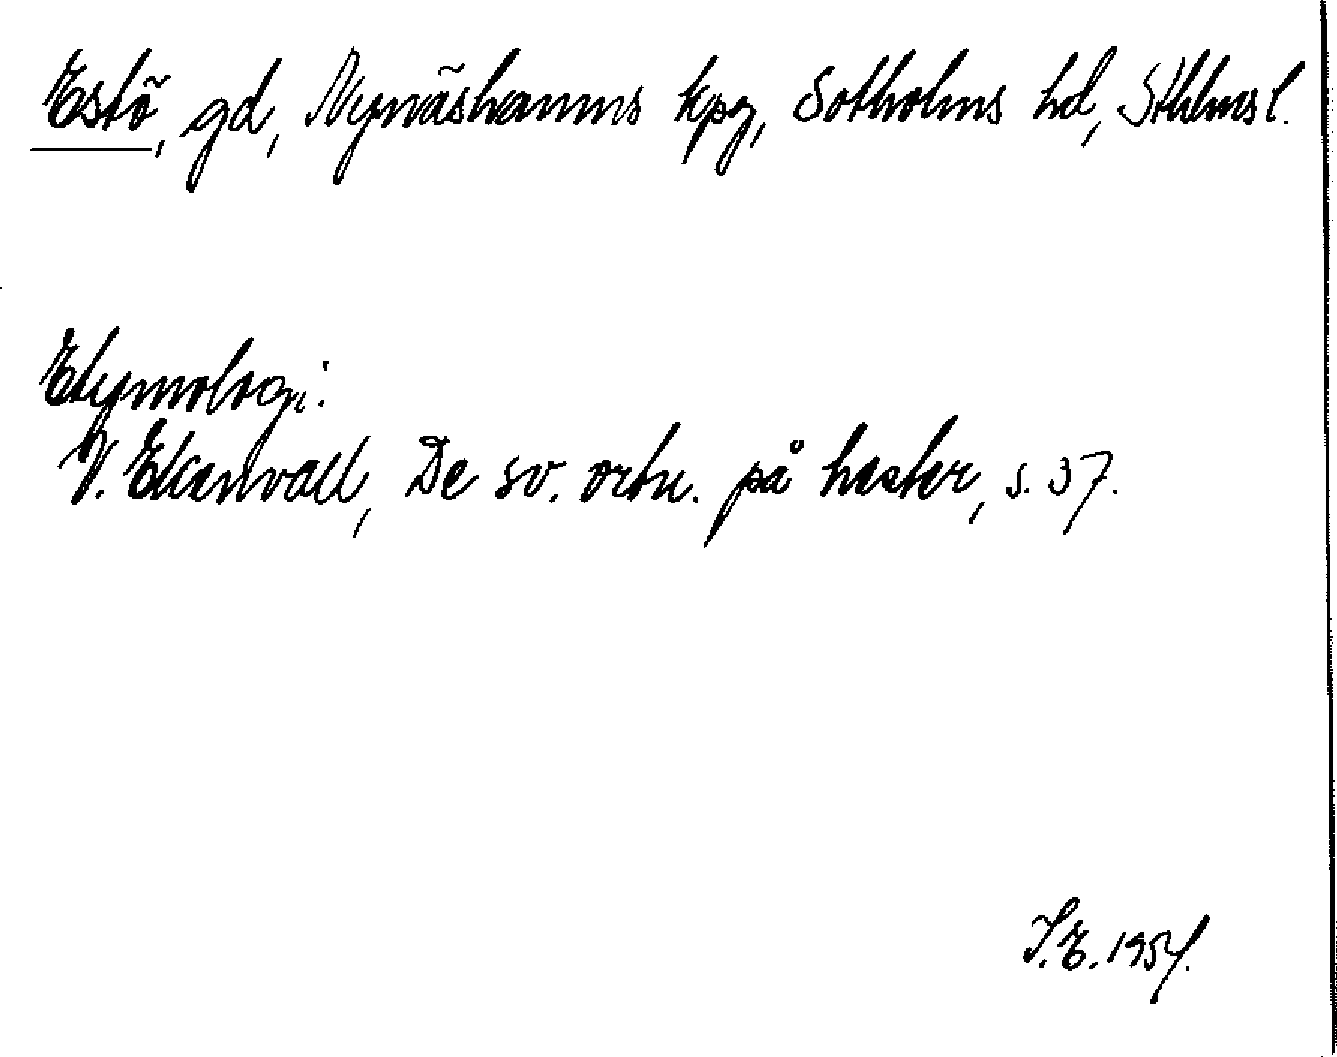 Estö, gd, Nynäshamns kpg, Sotholms hd, Sthlms l.
Etymologi:
V. Ekenvall, De sv. ortn. på hester, s. 37.
S.E. 1954.